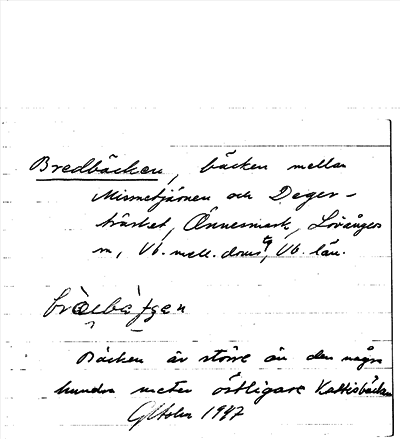 Bredbäcken, bäcken mellan
Mismetjärnen och Deger-
träsket, Önnesmark, Lövångers
sn, Vb. mell. doms., Vb. län.
Bäcken är större än den några
hundra meter östligare Kattisbäcken
1947